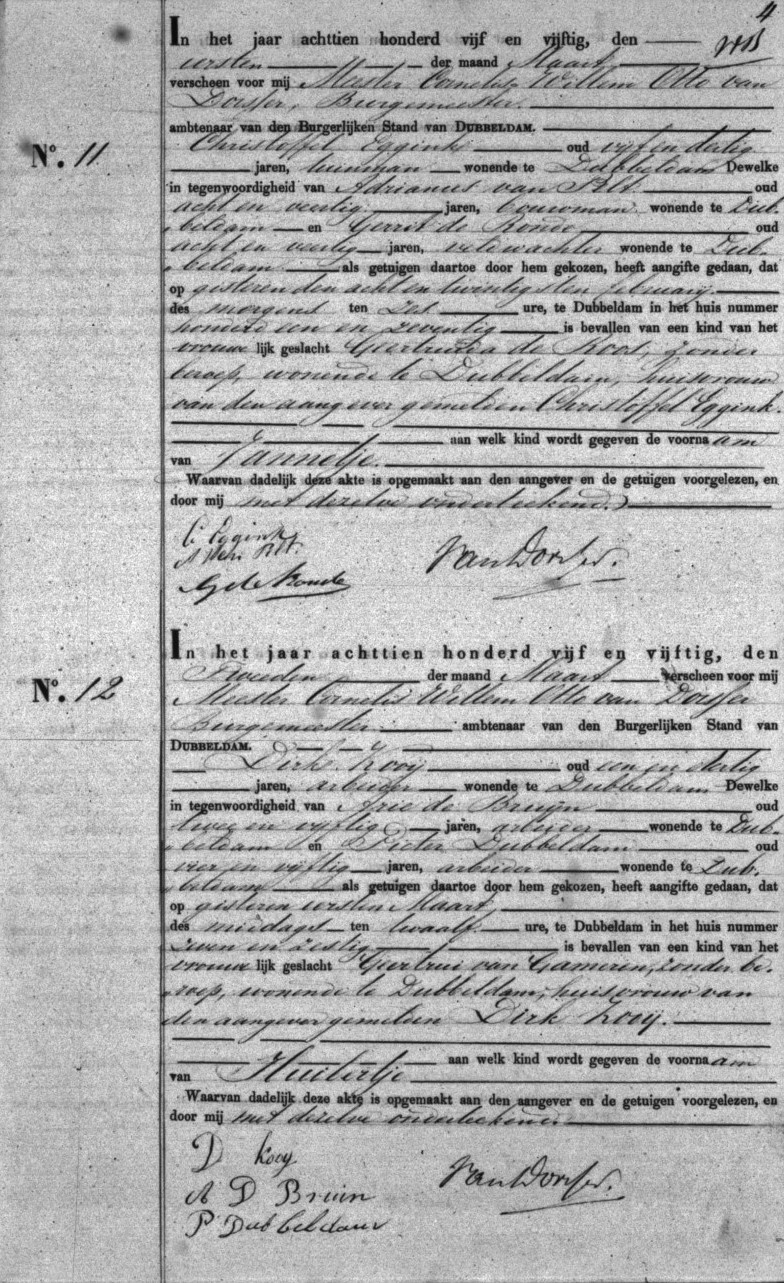 4
In het jaar achttien honderd vijf en vijftig, den
eersten der maand Maart
verscheen voor mij Meester Cornelis Willem Otto van
Dorsser, Burgemeester.
ambtenaar van den Burgerlijken Stand van DUBBELDAM.
Nº. 11
Christoffel Eggink oud vijf en dertig
jaren, tuinman wonende te Dubbeldam Dewelke
in tegenwoordigheid van Adrianus van Pelt oud
acht en veertig jaren, bouwman wonende te Dub
beldam en Gerrit de Ronde oud
acht en veertig jaren, veldwachter wonende te Dub-
beldam als getuigen daartoe door hem gekozen, heeft aangifte gedaan, dat
op gisteren den acht en twintigsten februarij
des morgens ten zes ure, te Dubbeldam in het huis nummer
honderd een en zeventig is bevallen van een kind van het
vrouwe lijk geslacht Geertruida de Koos, zonder
beroep, wonende te Dubbeldam, huisvrouw
van den aangever gemelden Christoffel Eggink.
aan welk kind wordt gegeven de voornaam
van Jannetje.
Waarvan dadelijk deze akte is opgemaakt aan den aangever en de getuigen voorgelezen, en
door mij met dezelve onderteekend.
C Eggink
A van Pelt.
G de Ronde
Van Dorsser.
In het jaar achttien honderd vijf en vijftig, den
Tweeden der maand Maart verscheen voor mij
Nº. 12
Meester Cornelis Willem Otto van Dorsser
Burgemeester ambtenaar van den Burgerlijken Stand van
DUBBELDAM.
Dirk Kooy oud een en dertig
jaren, arbeider wonende te Dubbeldam Dewelke
in tegenwoordigheid van Arie de Bruijn oud
twee en vijftig jaren, arbeider wonende te Dub-
beldam en Pieter Dubbeldam oud
vier en vijftig jaren, arbeider wonende te Dub.
beldam als getuigen daartoe door hem gekozen, heeft aangifte gedaan, dat
op gisteren eersten Maart
des middags ten twaalf ure, te Dubbeldam in het huis nummer
zeven en zestig is bevallen van een kind van het
vrouwe lijk geslacht Geertrui van Gameren, zonder be
roep, wonende te Dubbeldam, huisvrouw van
den aangever gemelden Dirk Kooy.
aan welk kind wordt gegeven de voornaam
van Huibertje
Waarvan dadelijk deze akte is opgemaakt aan den aangever en de getuigen voorgelezen, en
door mij met dezelve onderteekend.
D Kooy
A D Bruin
P Dubbeldam
Van Dorsser.